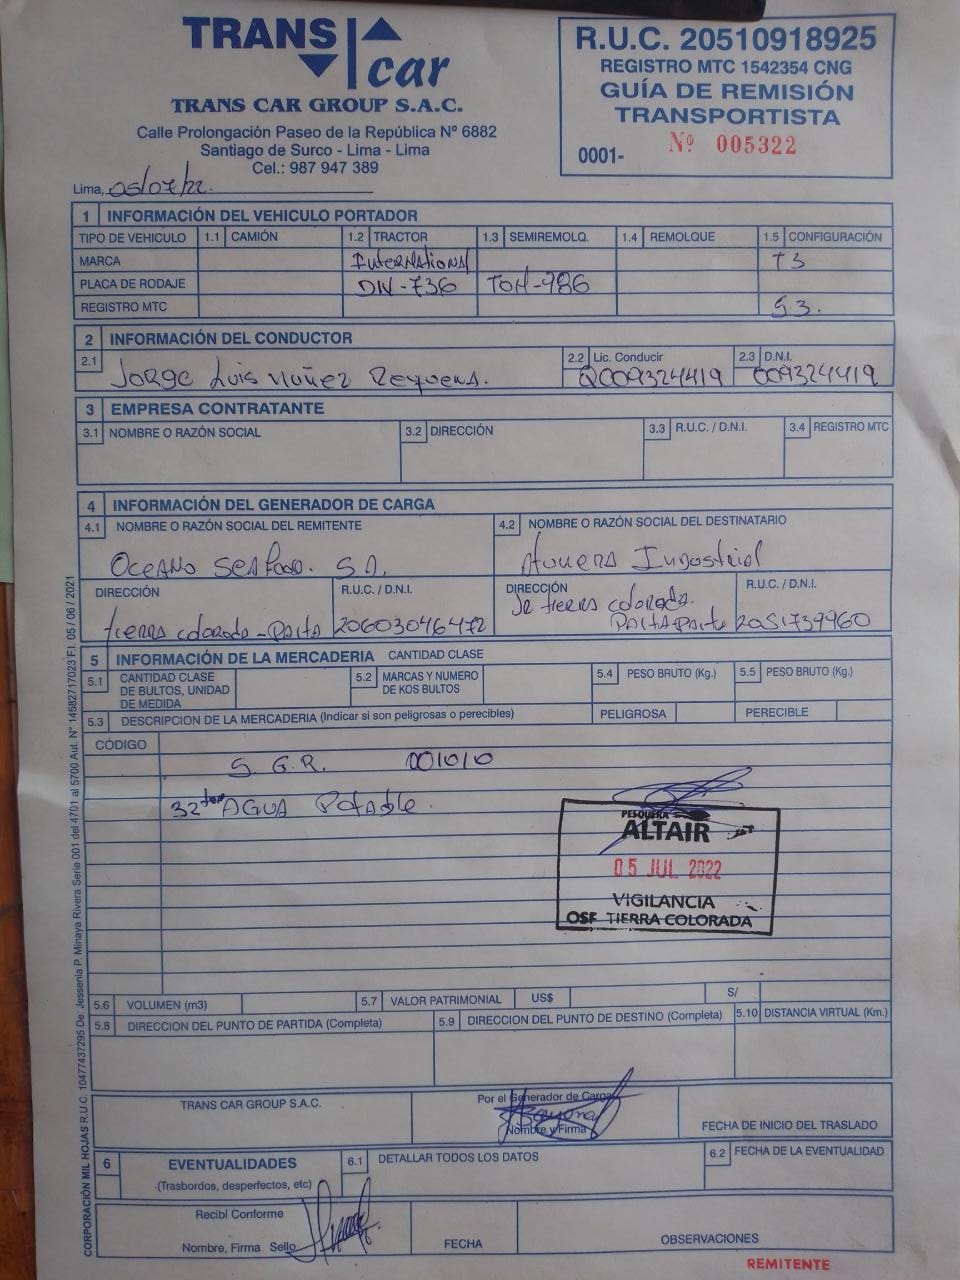 TRANS car
TRANS CAR GROUP S.A.C.
Calle Prolongación Paseo de la República Nº 6882
Santiago de Surco - Lima - Lima
Cel.: 987 947 389
R.U.C. 20510918925
REGISTRO MTC 1542354 CNG
GUÍA DE REMISIÓN
TRANSPORTISTA
0001- Nº 005322
Lima, 05/07/22.
1 INFORMACIÓN DEL VEHICULO PORTADOR
TIPO DE VEHICULO 1.1 CAMIÓN 1.2 TRACTOR 1.3 SEMIREMOLQ. 1.4 REMOLQUE 1.5 CONFIGURACIÓN
MARCA International T3
PLACA DE RODAJE DN-736 TOH-986
REGISTRO MTC S3.
2 INFORMACIÓN DEL CONDUCTOR
2.1 2.2 Lic. Conducir 2.3 D.N.I.
Jorge Luis Nuñez Q009324419 009324419
3 EMPRESA CONTRATANTE
3.1 NOMBRE O RAZÓN SOCIAL 3.2 DIRECCIÓN 3.3 R.U.C. / D.N.I. 3.4 REGISTRO MTC
4 INFORMACIÓN DEL GENERADOR DE CARGA
4.1 NOMBRE O RAZÓN SOCIAL DEL REMITENTE 4.2 NOMBRE O RAZÓN SOCIAL DEL DESTINATARIO
Oceano Seafood. S.A. Atunera Industrial
DIRECCIÓN R.U.C. / D.N.I. DIRECCIÓN R.U.C. / D.N.I.
Jr tierra colorada.
tierra colorada - Paita 20603046472 2051739960
5 INFORMACIÓN DE LA MERCADERIA CANTIDAD CLASE
5.1 CANTIDAD CLASE DE BULTOS, UNIDAD DE MEDIDA 5.2 MARCAS Y NUMERO DE KOS BULTOS 5.4 PESO BRUTO (Kg.) 5.5 PESO BRUTO (Kg.)
5.3 DESCRIPCION DE LA MERCADERIA (Indicar si son peligrosas o perecibles) PELIGROSA PERECIBLE
CÓDIGO
S. G.R. 001010
32 ton AGUA Potable.
PESQUERA
ALTAIR
05 JUL 2022
VIGILANCIA
OSF TIERRA COLORADA
5.6 VOLUMEN (m3) 5.7 VALOR PATRIMONIAL US$ S/
5.8 DIRECCION DEL PUNTO DE PARTIDA (Completa) 5.9 DIRECCION DEL PUNTO DE DESTINO (Completa) 5.10 DISTANCIA VIRTUAL (Km.)
TRANS CAR GROUP S.A.C. Por el Generador de Carga
Nombre y Firma FECHA DE INICIO DEL TRASLADO
6 EVENTUALIDADES 6.1 DETALLAR TODOS LOS DATOS 6.2 FECHA DE LA EVENTUALIDAD
(Trasbordos, desperfectos, etc)
Recibí Conforme
Nombre, Firma Sello FECHA OBSERVACIONES
REMITENTE
CORPORACIÓN MIL HOJAS R.U.C. 10477437295 De: Jessenia P. Minaya Rivera Serie 001 del 4701 al 5700 Aut. N° 14582717023 F.I. 05 / 06 / 2021